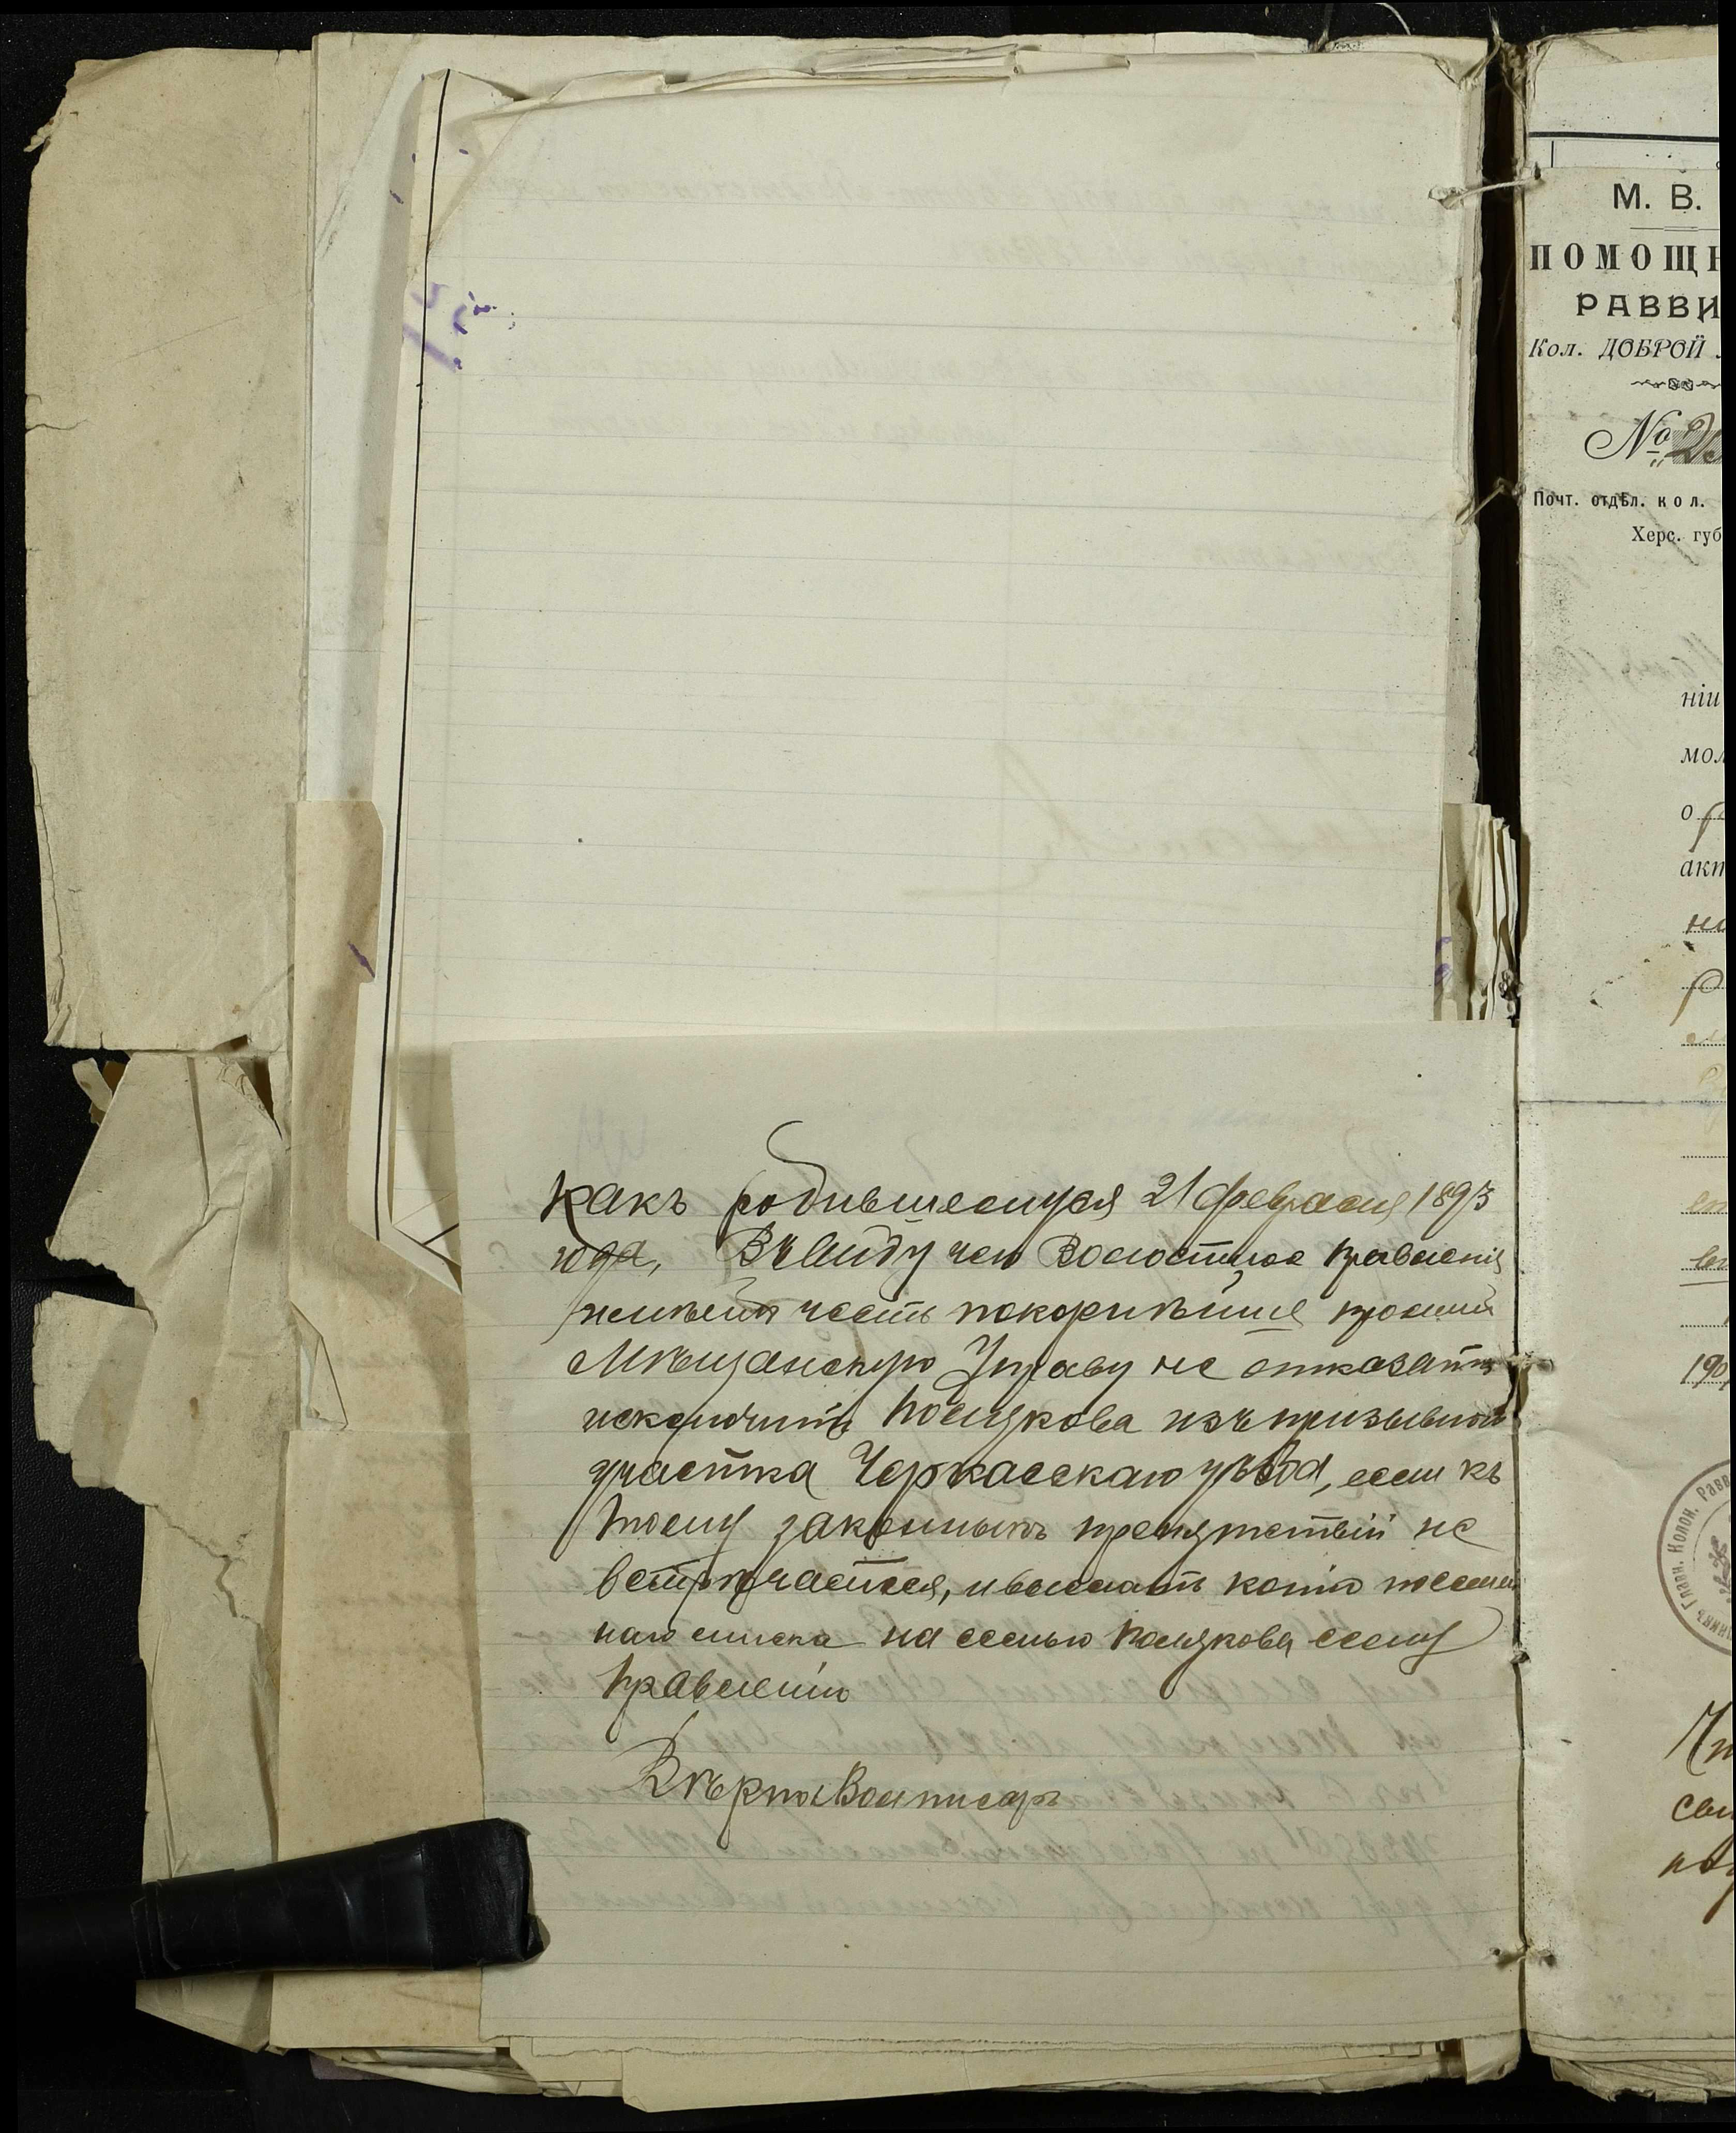 какъ родившемуся 21 февраля 1893
года, Въ виду чего Волостное Правленіе
имѣетъ честь покорнѣйше просить
Мѣщанскую Управу не отказать
исключить Полякова изъ призывного
участка Черкасскаго уѣзда, если къ
тому законныхъ препятствій не
встрѣчается, и выслать копію посемей
наго списка на семью Полякова сему
Правленію
Вѣрно Вол писарь
М. В.
ПОМОЩН
РАВВИ
Кол. ДОБРОЙ
№
Почт. отдѣл. кол.
Херс. губ
ніи
мол
о
акт
190
Глав. Колон. Равв